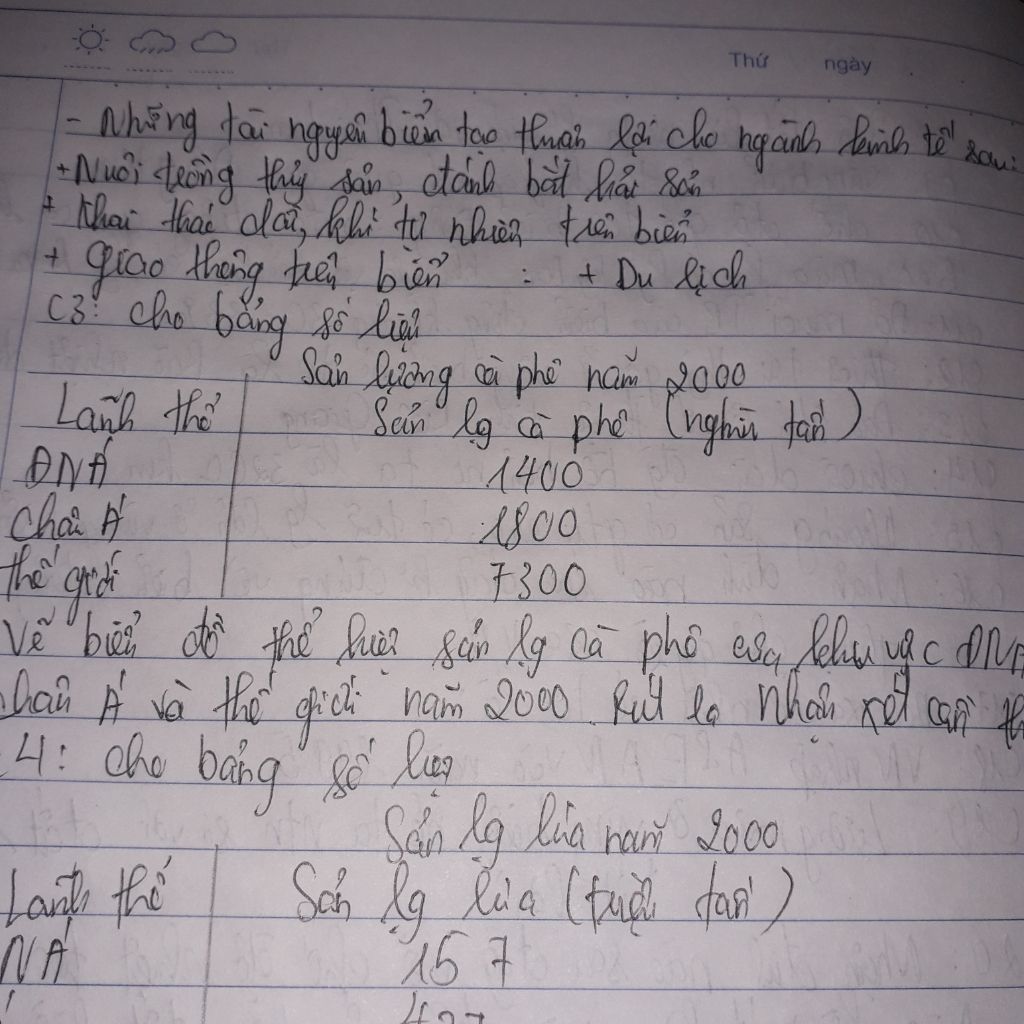 Thứ ngày
- Những tài nguyên biển tạo thuận lợi cho ngành kinh tế sau:
+ Nuôi trồng thủy sản, đánh bắt hải sản
+ Khai thác dầu, khí tự nhiên trên biển
+ giao thông trên biển : + Du lịch
C3: cho bảng số liệu
Sản lượng cà phê năm 2000
Lãnh thổ Sản lg cà phê (nghìn tấn)
ĐNÁ 1400
Châu Á 1800
thế giới 7300
Vẽ biểu đồ thể hiện sản lg cà phê của khu vực ĐNÁ
Á và thế giới năm 2000. Rút ra nhận xét cần
4: cho bảng số liệu
Sản lg lúa năm 2000
Lãnh thổ Sản lg lúa (triệu tấn)
NÁ 157